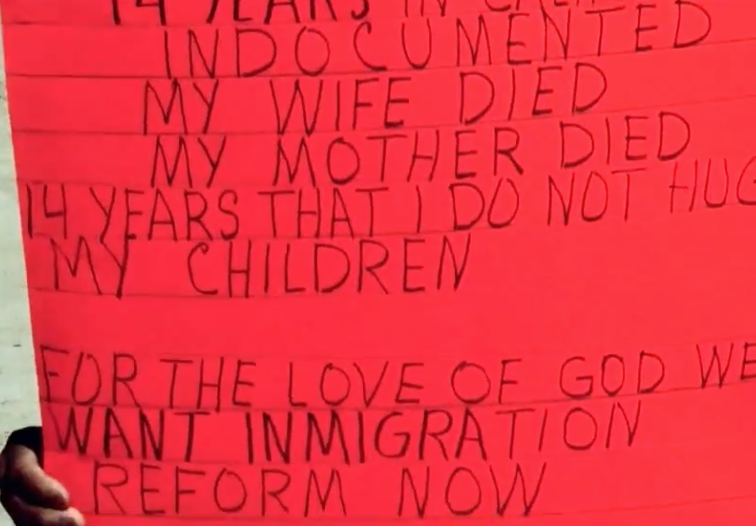 14 YEARS IN
INDOCUMENTED
MY WIFE DIED
MY MOTHER DIED
14 YEARS THAT I DO NOT HUG
MY CHILDREN
FOR THE LOVE OF GOD WE
WANT INMIGRATION
REFORM NOW